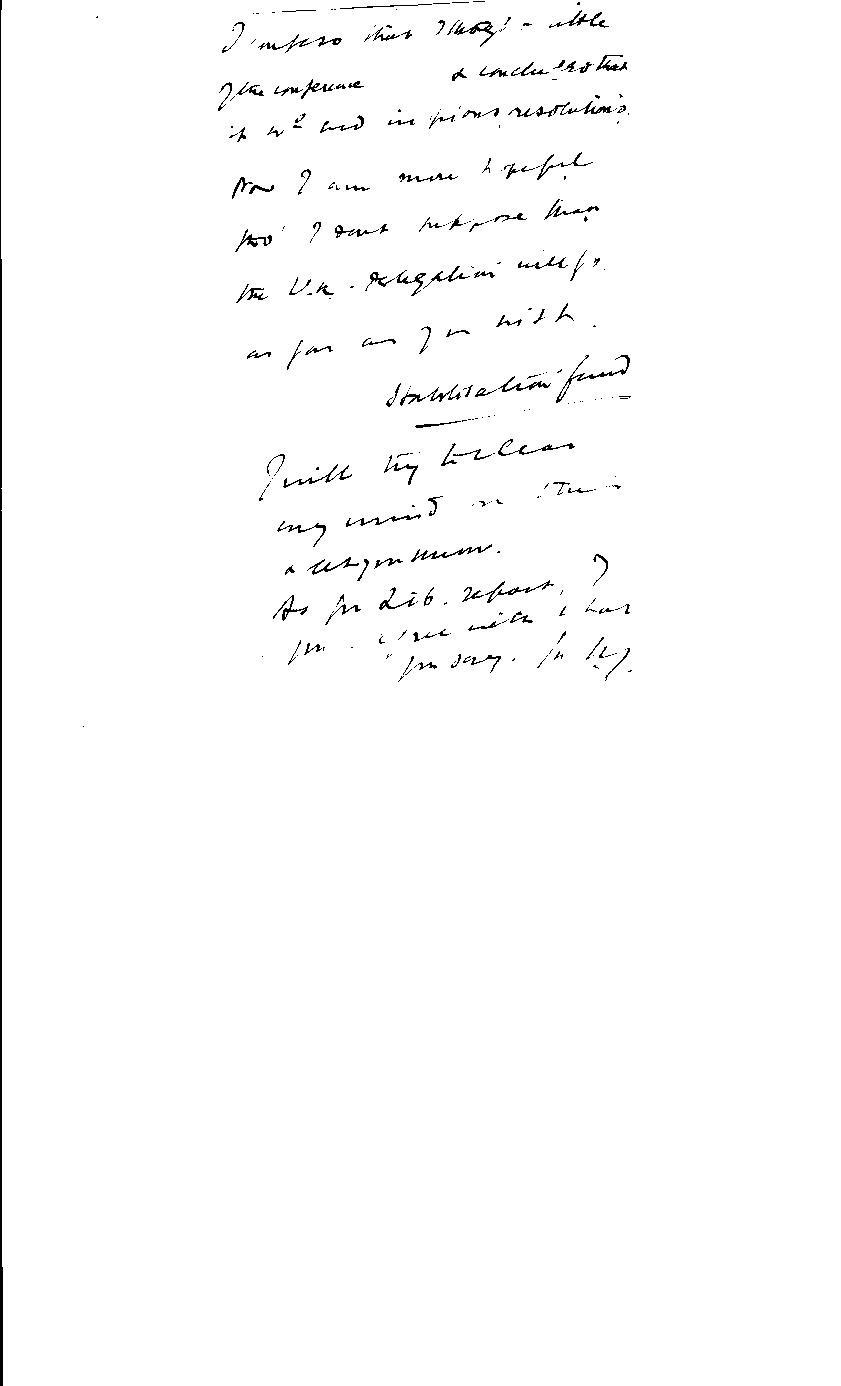 I confess that I thoug' a little
of the conference & concluded that
it wd end in pious resolutions.
Now I am more hopeful
tho' I dont suppose that
the U.K. delegation will go
as far as you wish.
Stabilisation fund
I will try to clear
my mind on this
& let you know.
As for Lib. report, I
agree with what
you say.